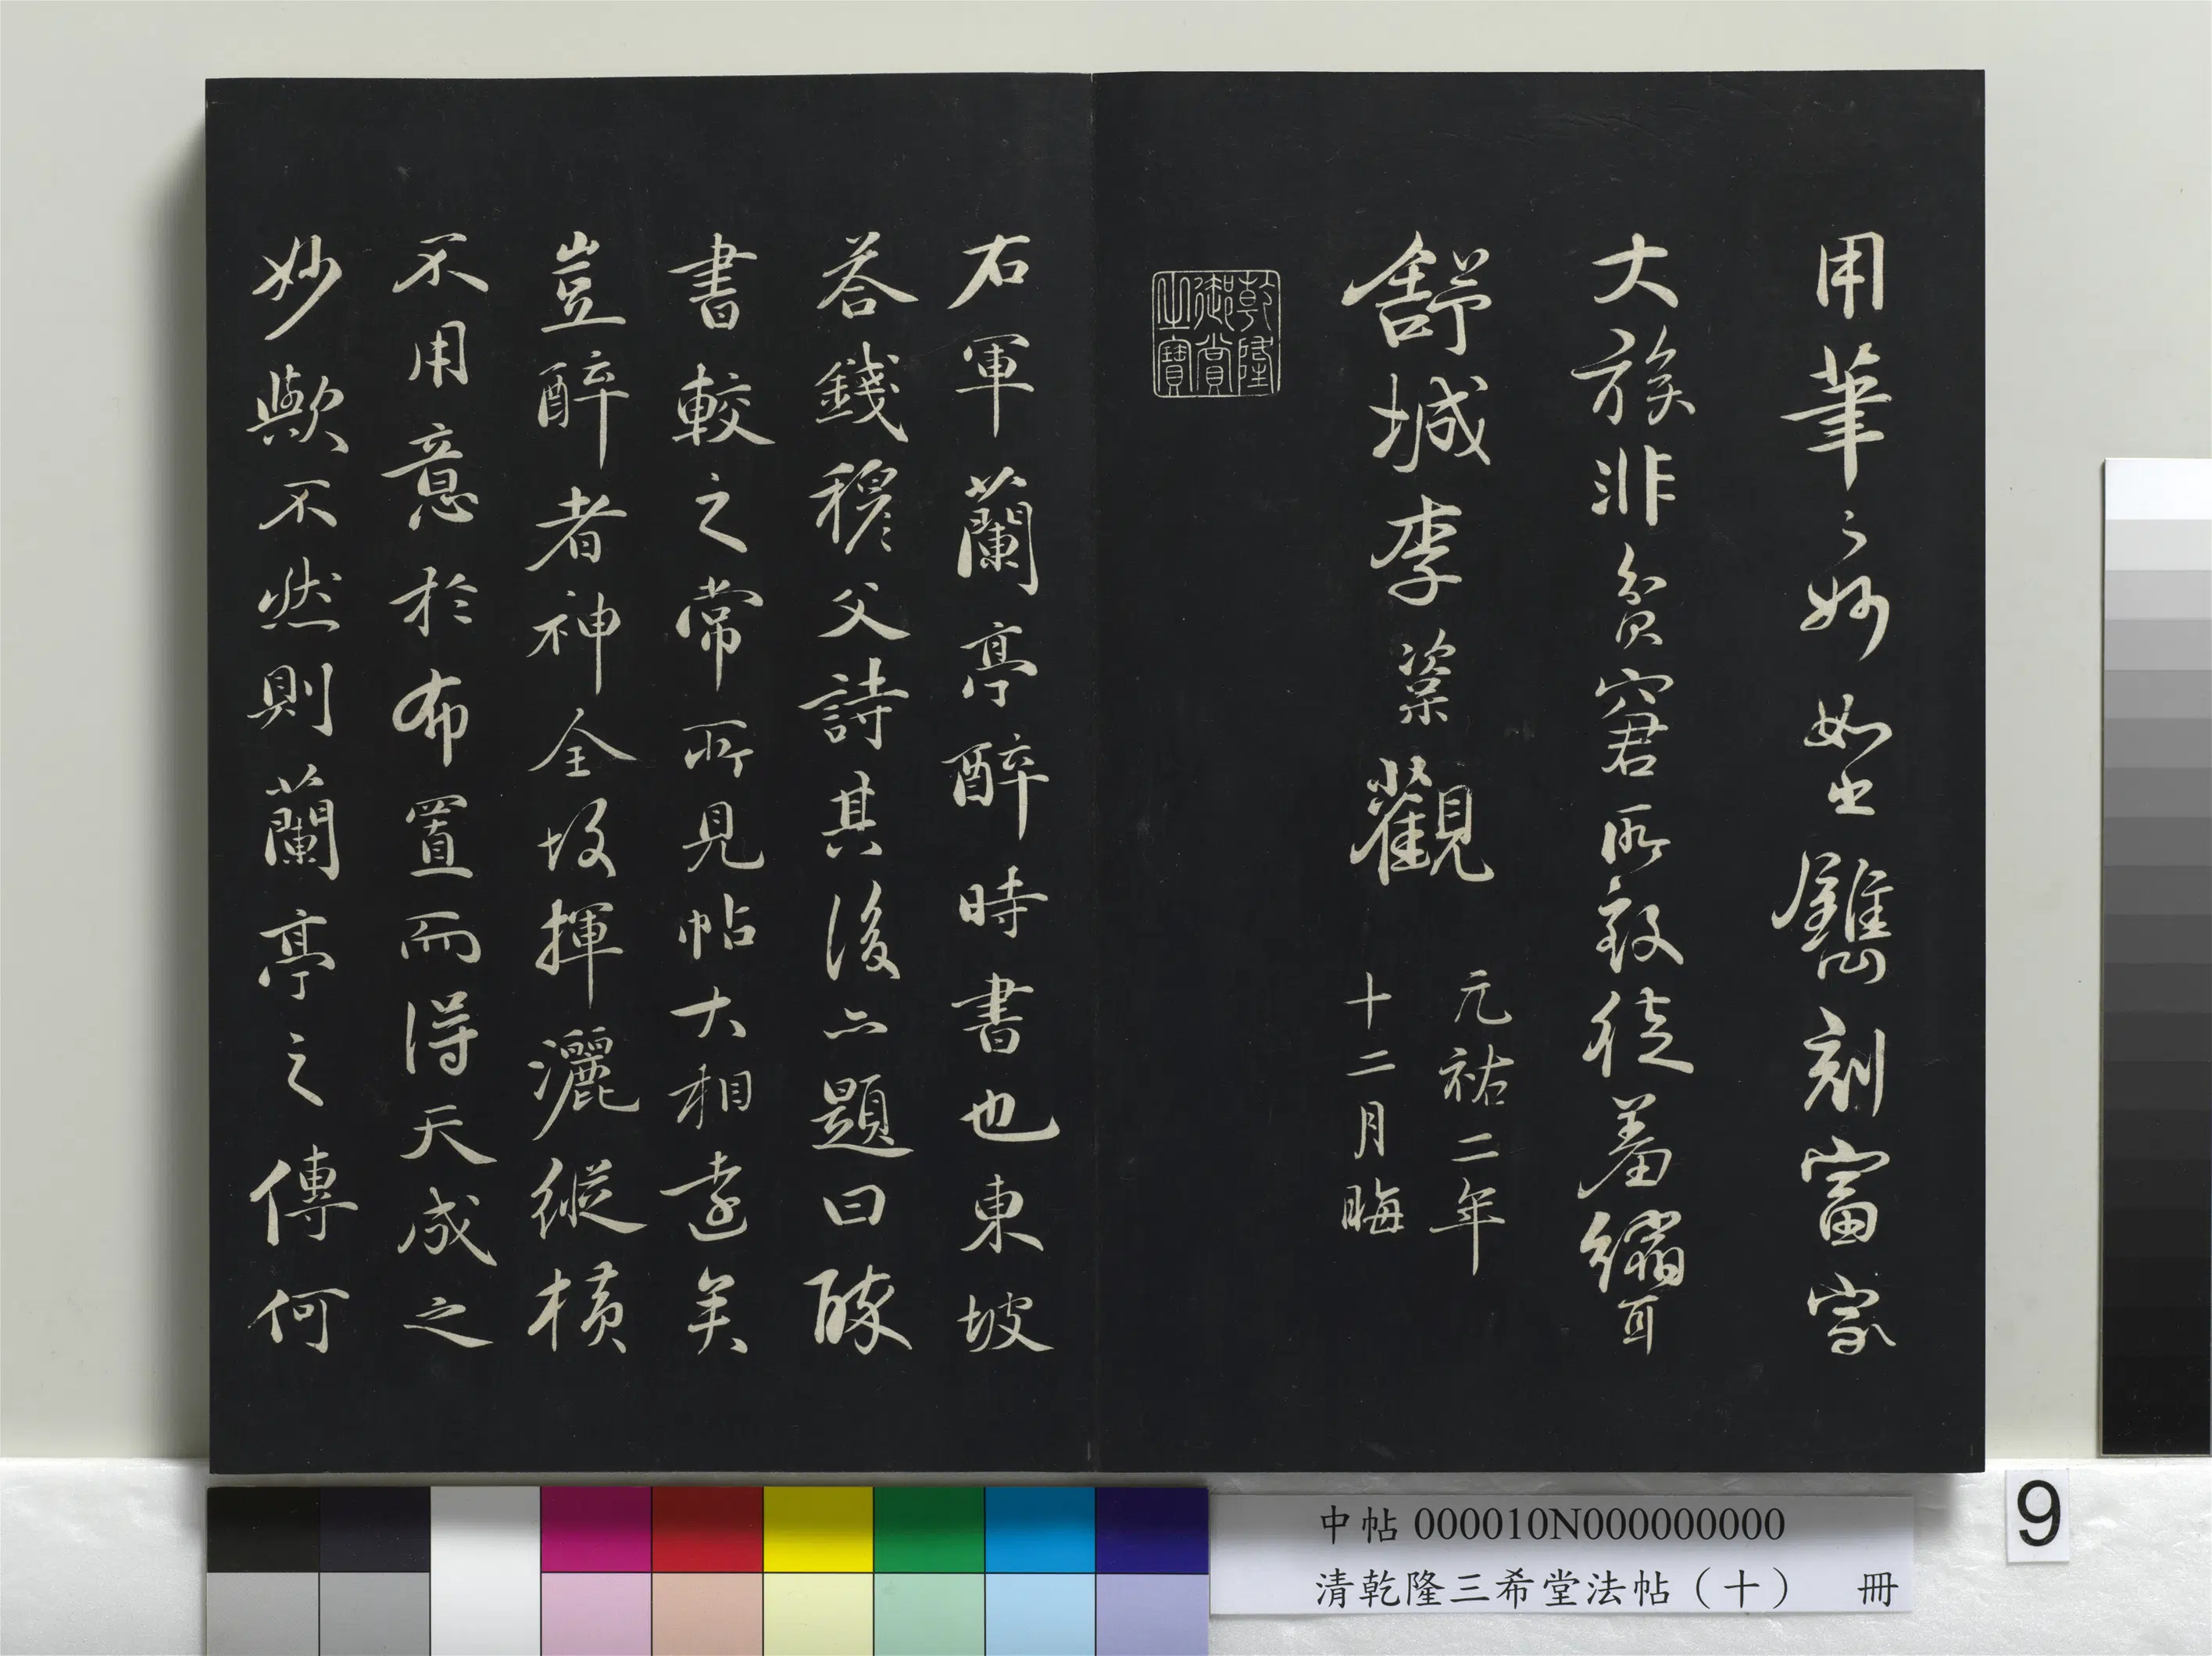 用筆之妙如出鐫刻富家
大族非貧窘所致徒羞縮耳
舒城李楶觀
元祐二年
十二月晦
乾隆御賞之寶
右軍蘭亭醉時書也東坡
荅錢穆父詩其後亦題曰醉
書較之常所見帖大相遠矣
豈醉者神全故揮灑縱橫
不用意於布置而得天成之
妙歟不然則蘭亭之傳何
中帖 000010N000000000
清乾隆三希堂法帖（十） 冊
9